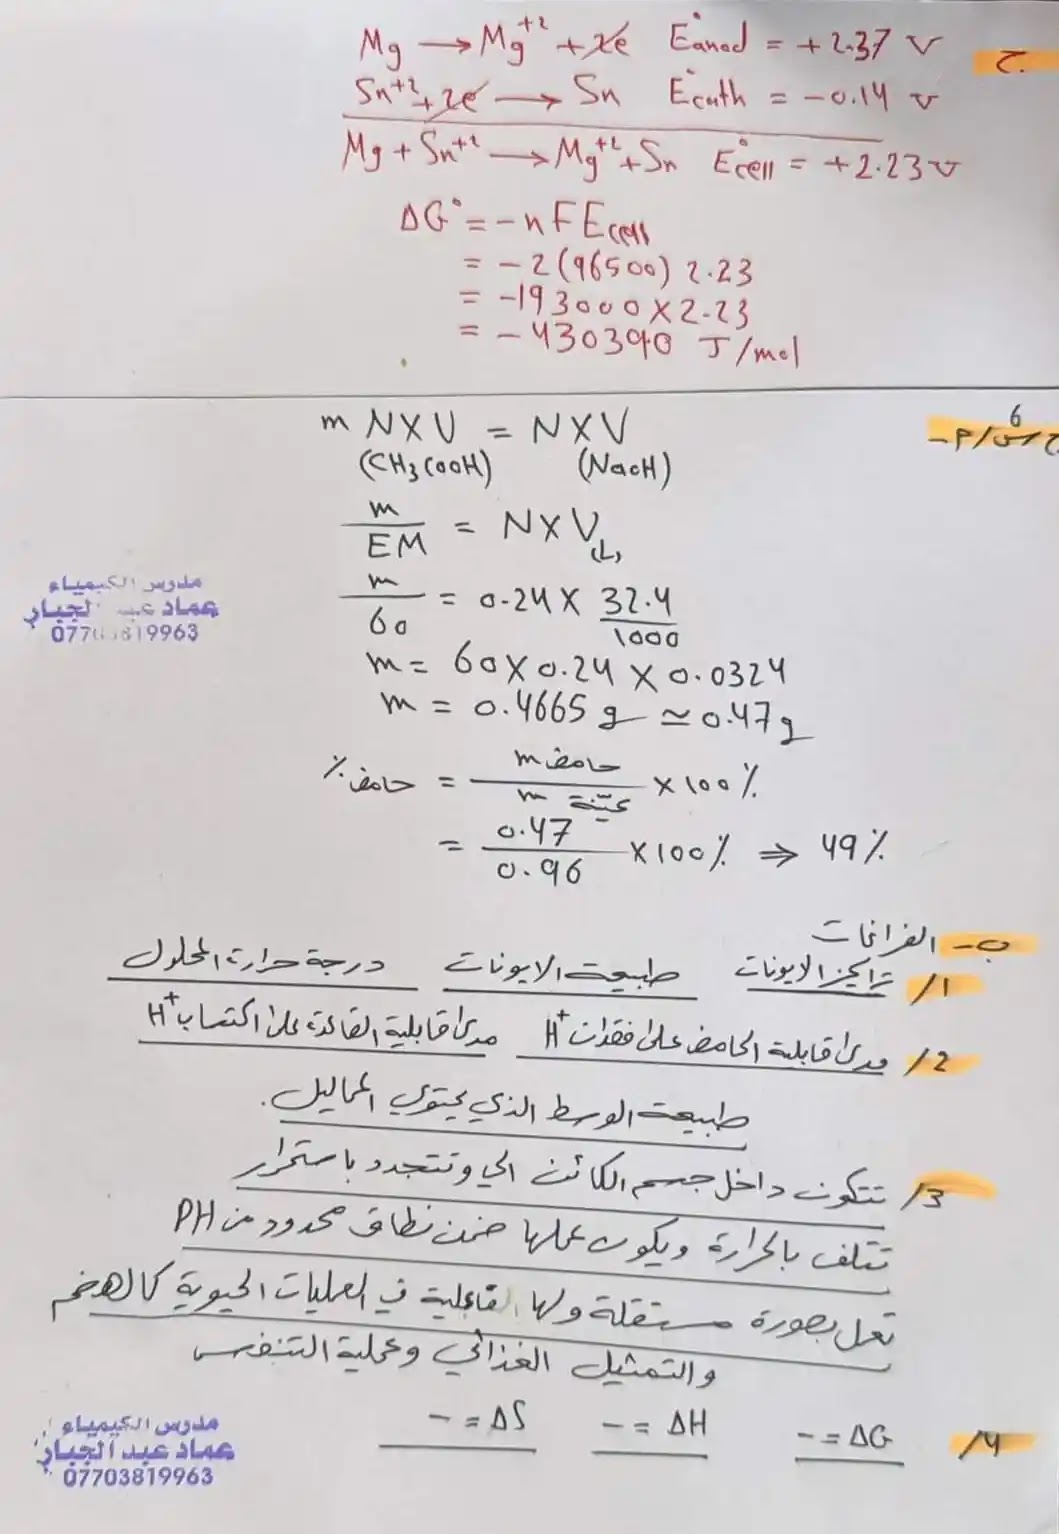 ج
Mg → Mg⁺² + 2e E°anod = +2.37 v
Sn⁺² + 2e → Sn E°cath = -0.14 v
Mg + Sn⁺² → Mg⁺² + Sn E°cell = +2.23 v
ΔG° = -nFEcell
= -2(96500) 2.23
= -193000 X 2.23
= -430390 J/mol
ج س6/ م -
m NXV = NXV
(CH3COOH) (NaOH)
m/EM = NXV(L)
m/60 = 0.24 X 32.4/1000
m = 60 X 0.24 X 0.0324
m = 0.4665 g ≃ 0.47g
حامض % = m حامض / m عيّنة X 100%
= 0.47/0.96 X 100% ⇒ 49%
مدرس الكيمياء
عماد عبد الجبار
ب - الفراغات
1/ تراكيز الايونات طبيعة الايونات درجة حرارة المحلول
2/ مدى قابلية الحامض على فقدان H⁺ مدى قابلية القاعدة على اكتساب H⁺
طبيعة الوسط الذي يحتوي المحاليل.
3/ تتكون داخل جسم الكائن الحي وتتجدد باستمرار
تتلف بالحرارة ويكون عملها ضمن نطاق محدود من PH
تعمل بصورة مستقلة ولها الفاعلية في العمليات الحيوية كالهضم
والتمثيل الغذائي وعملية التنفس
4/ ΔG = - ΔH = - ΔS = -
مدرس الكيمياء
عماد عبد الجبار
07703819963